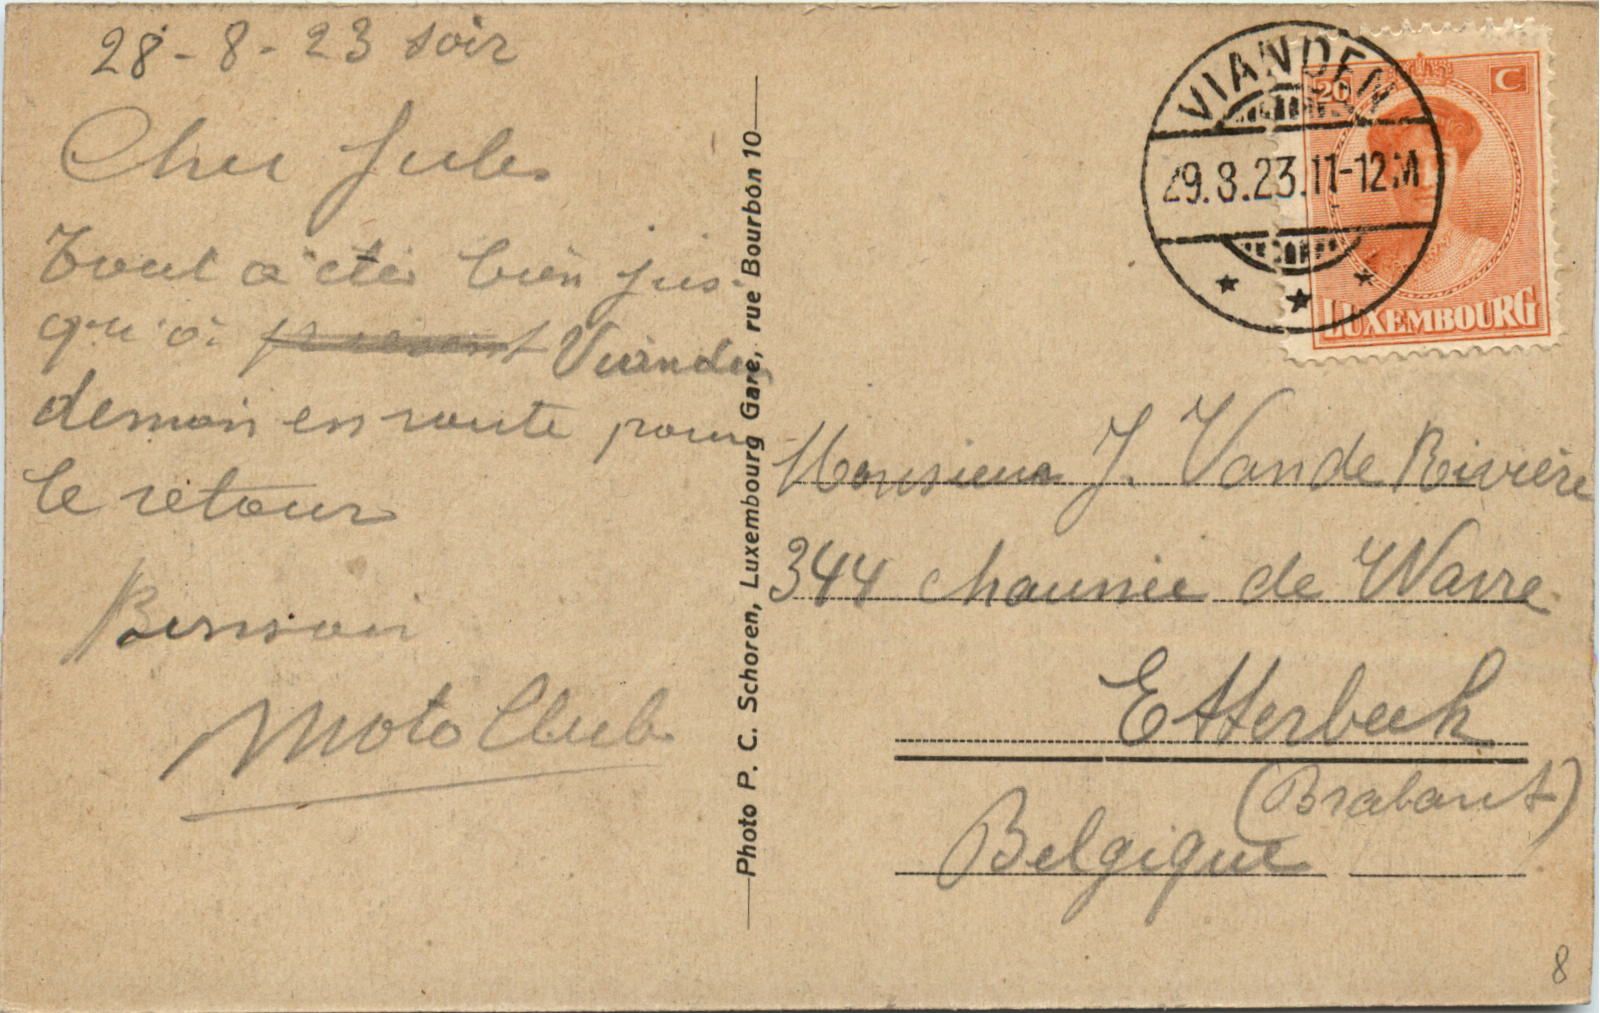 28-8-23 soir
Cher Jules
Tout a été bien jus-
qu'à present Vianden
demain en route pour
le retour
Bonsoir
Moto Club
Photo P. C. Schoren, Luxembourg Gare, rue Bourbon 10
VIANDEN
29.8.23.11-12M
20
C
LUXEMBOURG
Monsieur J. Van de Rivière
344 chaussée de Wavre
Etterbeek
(Brabant)
Belgique
8